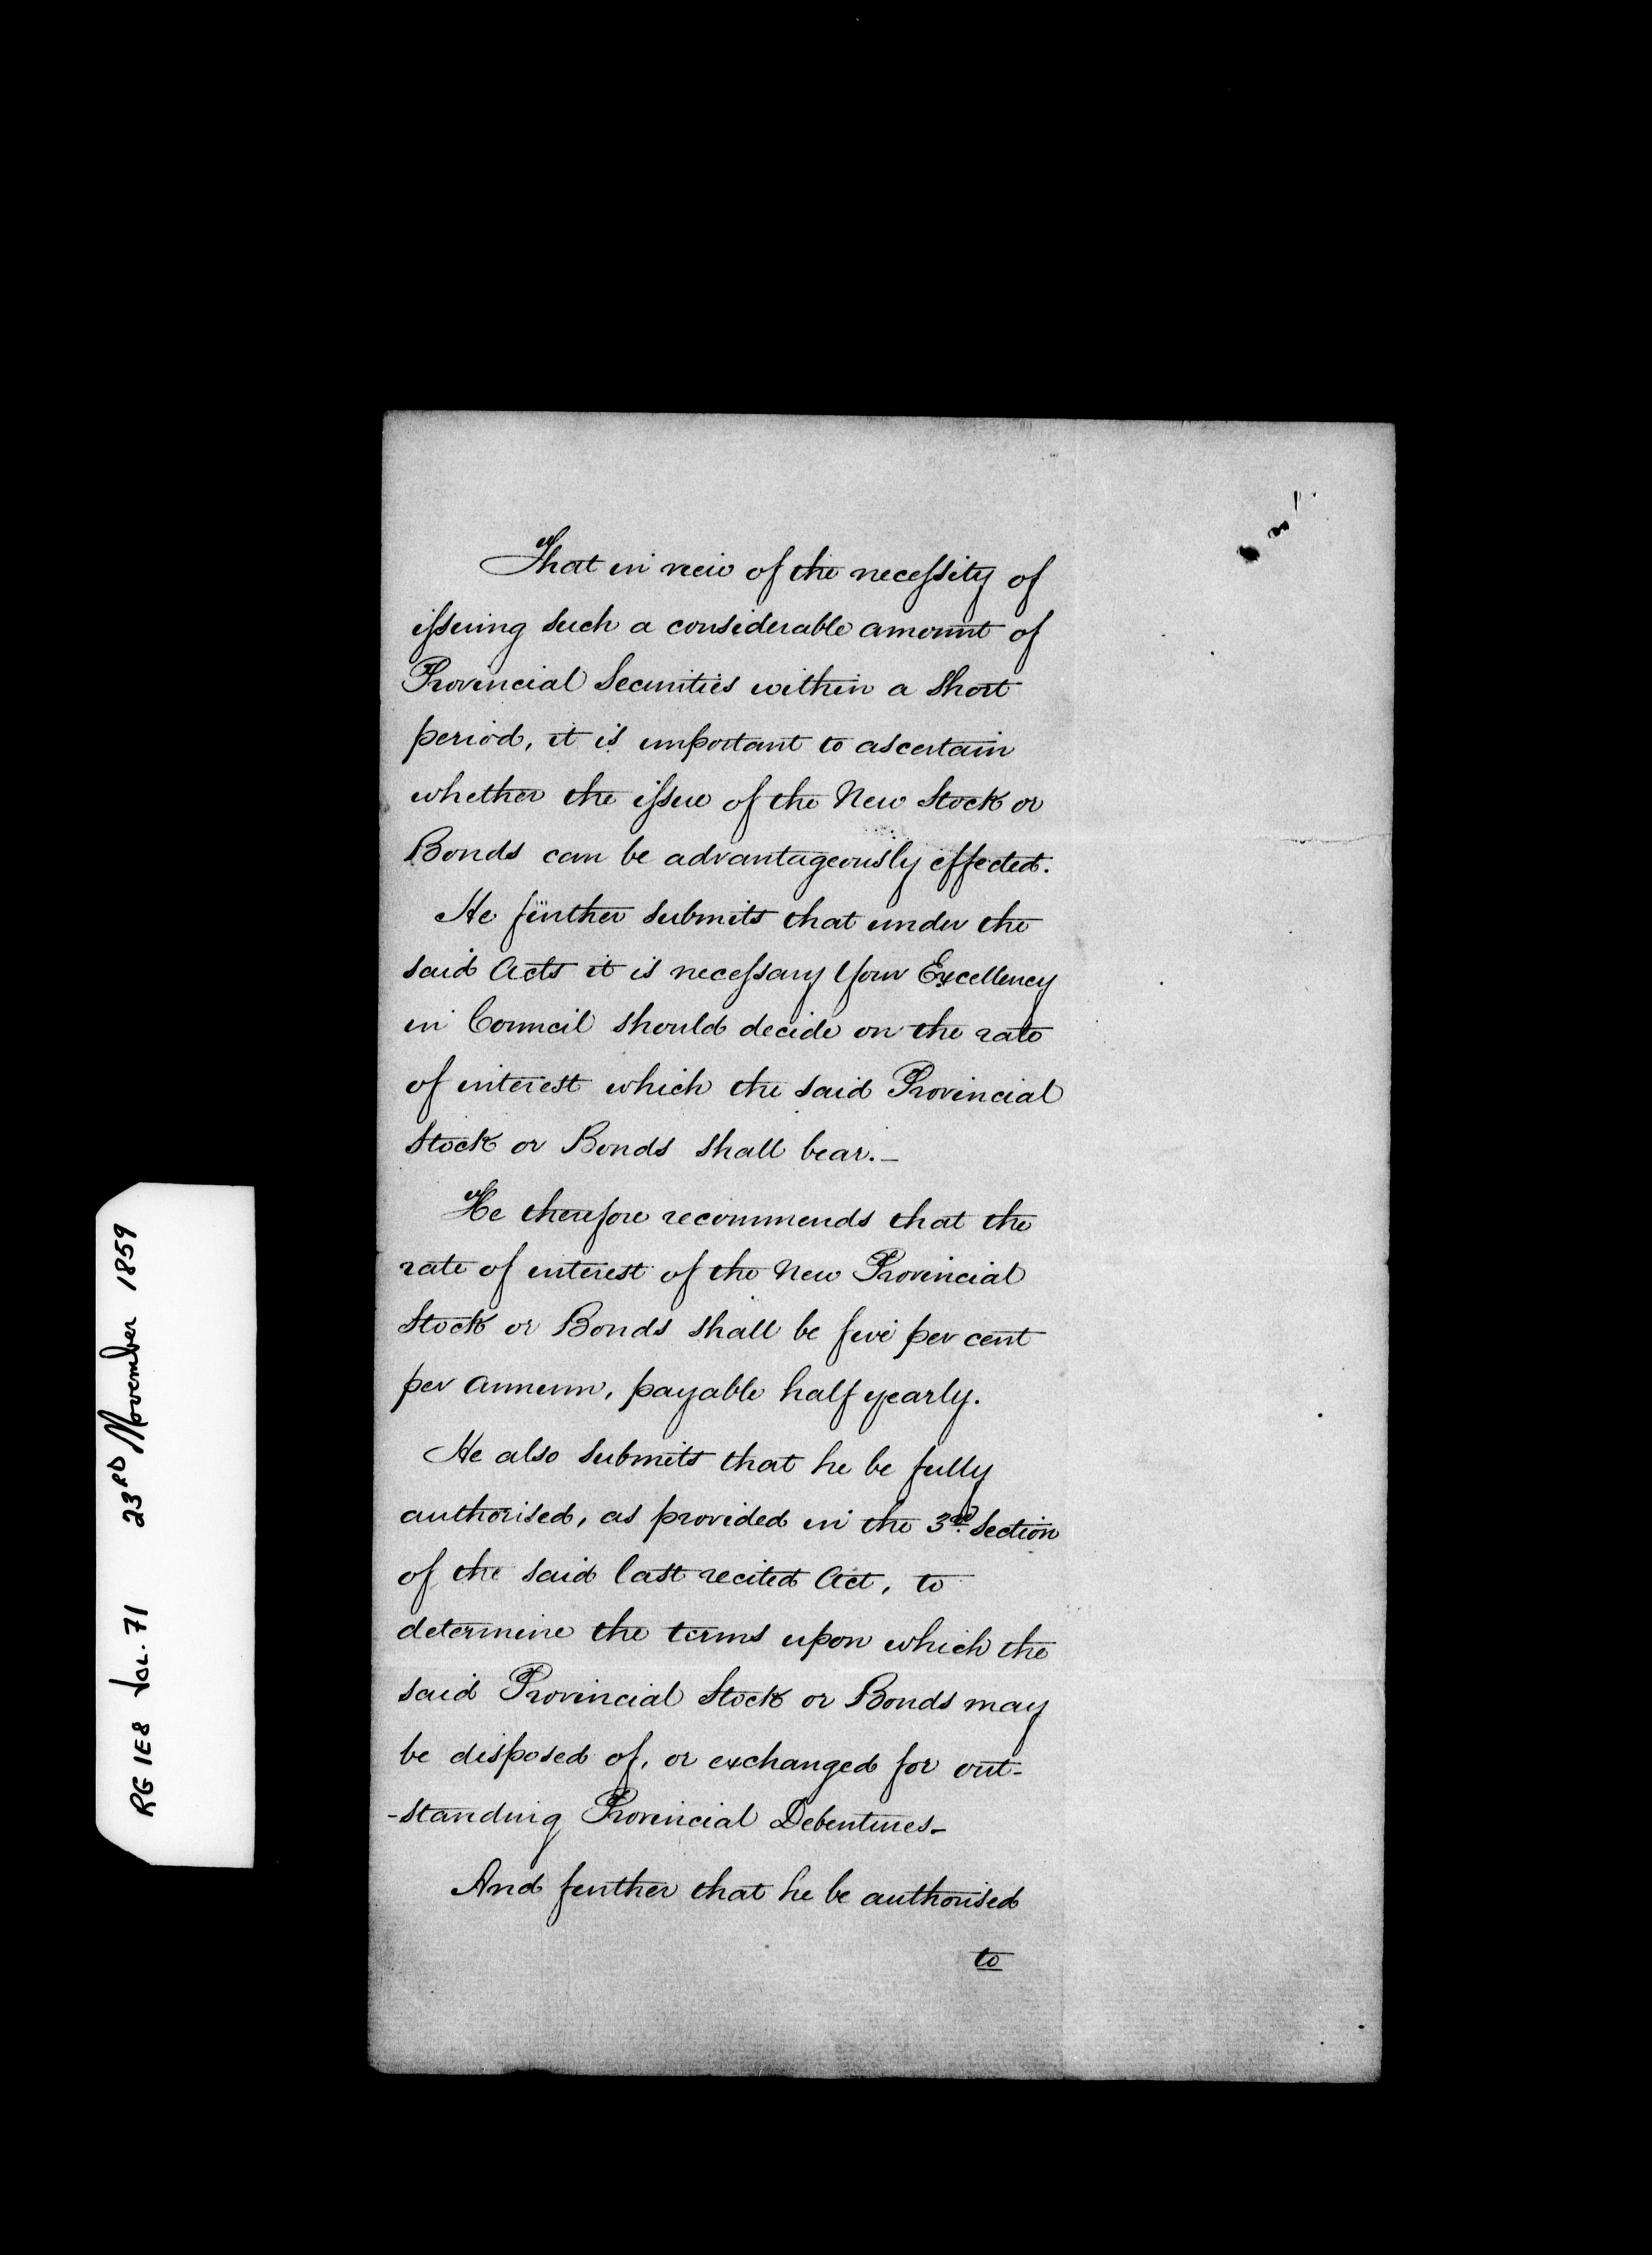 That in view of the necessity of
issuing such a considerable amount of
Provincial Securities within a short
period, it is important to ascertain
whether the issue of the New Stock or
Bonds can be advantageously effected.
He further submits that under the
said Acts it is necessary Your Excellency
in Council should decide on the rate
of interest which the said Provincial
Stock or Bonds shall bear._
He therefore recommends that the
rate of interest of the New Provincial
Stock or Bonds shall be five per cent
per annum, payable half yearly.
He also submits that he be fully
authorised, as provided in the 3rd. Section
of the said last recited Act, to
determine the terms upon which the
said Provincial Stock or Bonds may
be disposed of, or exchanged for out-
-standing Provincial Debentures_
And further that he be authorised
to
RG 1E8 Vol. 71 23RD November 1859